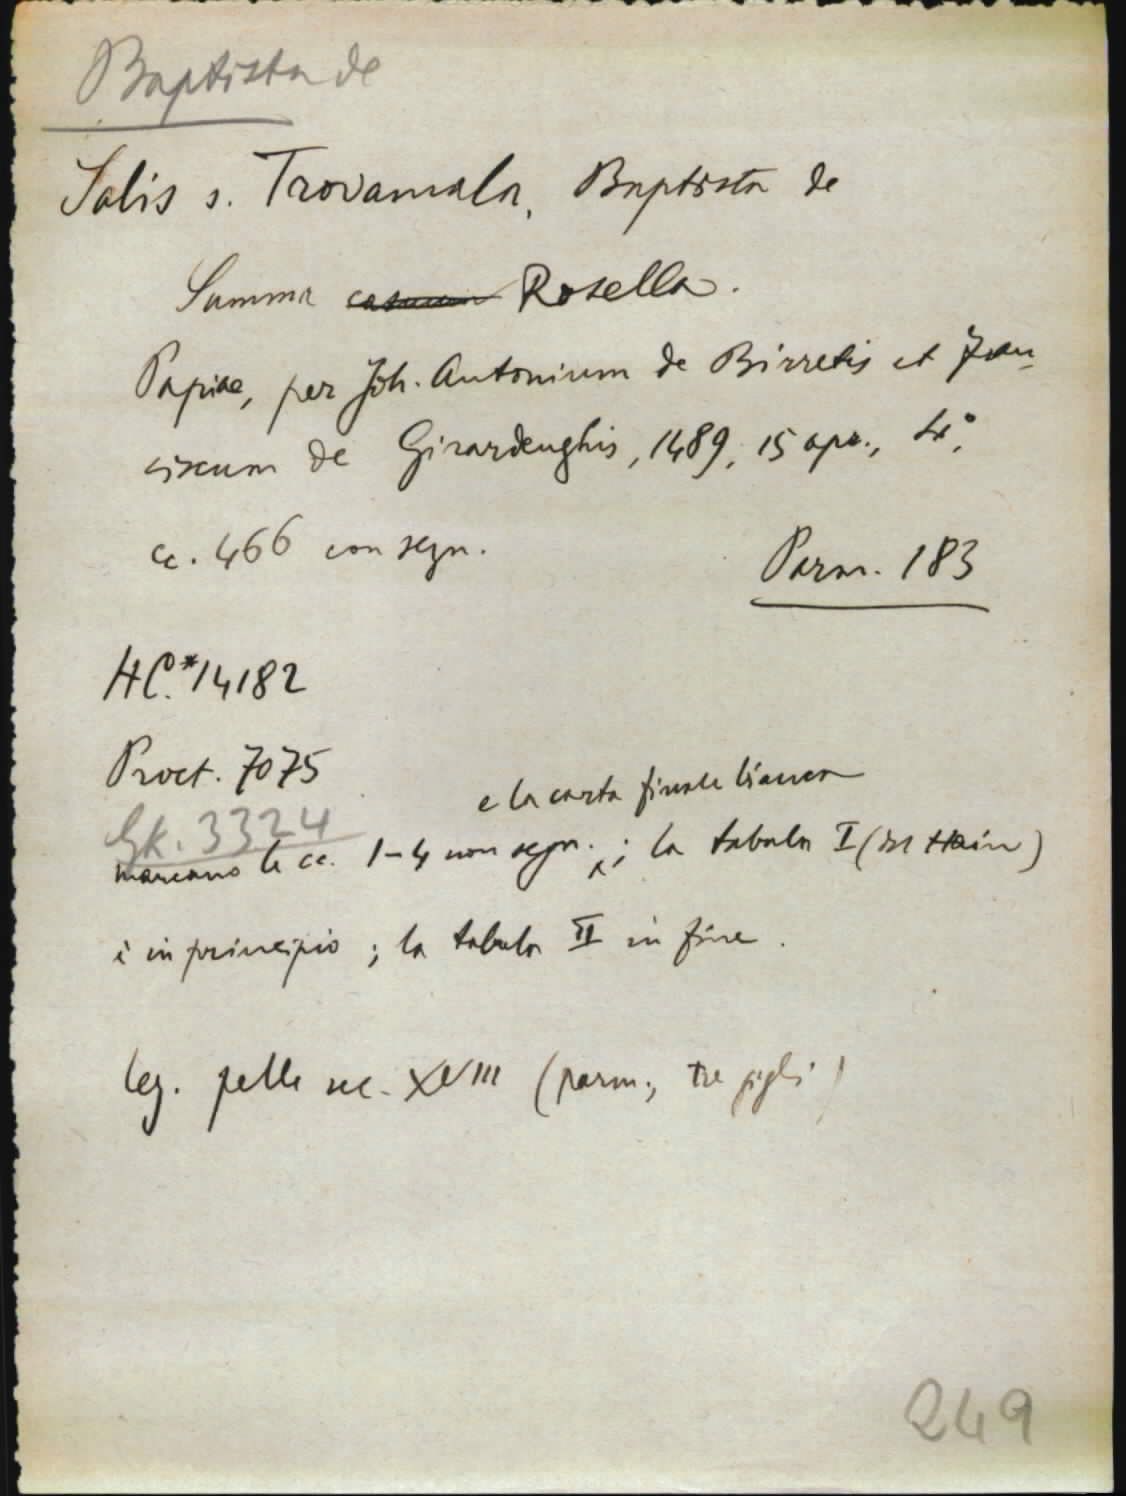 Baptista de
Salis s. Trovamala, Baptista de
Summa casuum Rosella.
Papiae, per Joh. Antonium de Birretis et Fran-
ciscum de Girardenghis, 1489, 15 apr., 4°.
cc. 466 con segn.
Parm. 183
HC.*14182
Proct. 7075
e la carta finale bianca
Gk. 3324
mancano le cc. 1-4 non segn. ; la tabula I (in Hain)
è in principio ; la tabula II in fine.
leg. pelle sec. XVIII (parm., tre gigli)
249